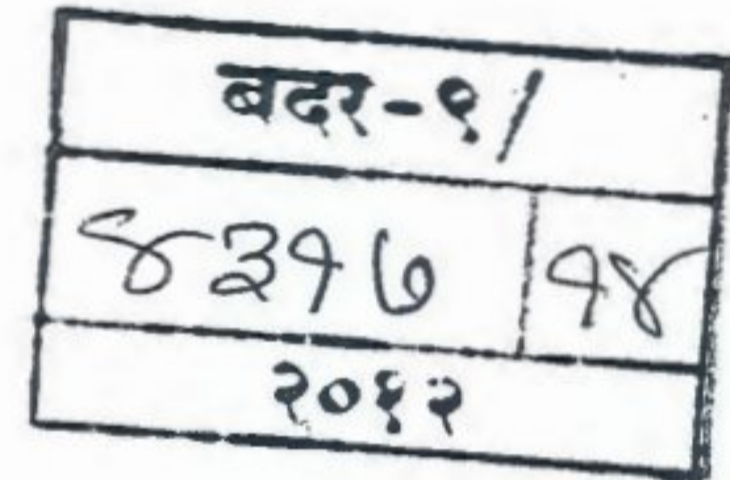 बदर-९/
४३१७ १४
२०१२